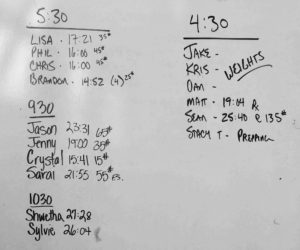 5:30
LISA - 17:21 35#
PHIL - 16:00 45#
CHRIS - 16:00 45#
BRANDON - 14:52 (4) 25#
930
Jason 23:31 65#
Jenny 19:00 35#
Crystal 15:41 15#
Sarai 21:55 55#
1030
Shwetha 27:28
Sylvie 26:04
4:30
JAKE -
KRIS - WEIGHTS
DAN -
MATT - 19:04 Rx
SEAN - 25:40 @ 135#
STACY T -